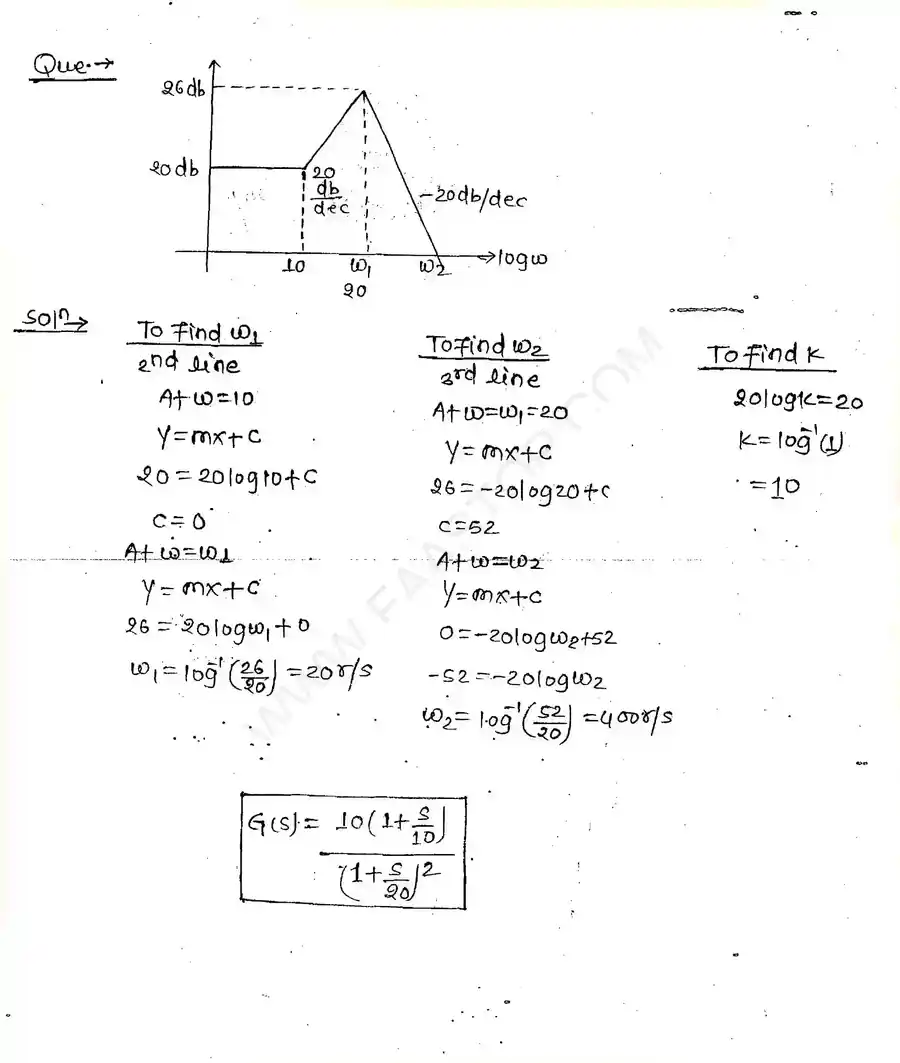 Que.→
26db
20db
20
db
dec
-20db/dec
10 ω1 ω2 → logω
20
Soln→
To find ω1
2nd line
At ω=10
Y=mx+c
20=20log10+c
c=0
At ω=ω1
Y=mx+c
26=20logω1+0
ω1=log⁻¹(26/20)=20r/s
To find ω2
3rd line
At ω=ω1=20
Y=mx+c
26=-20log20+c
c=52
At ω=ω2
Y=mx+c
0=-20logω2+52
-52=-20logω2
ω2=log⁻¹(52/20)=400r/s
To find K
20logK=20
K=log⁻¹(1)
=10
G(s)= 10(1+s/10)
(1+s/20)2